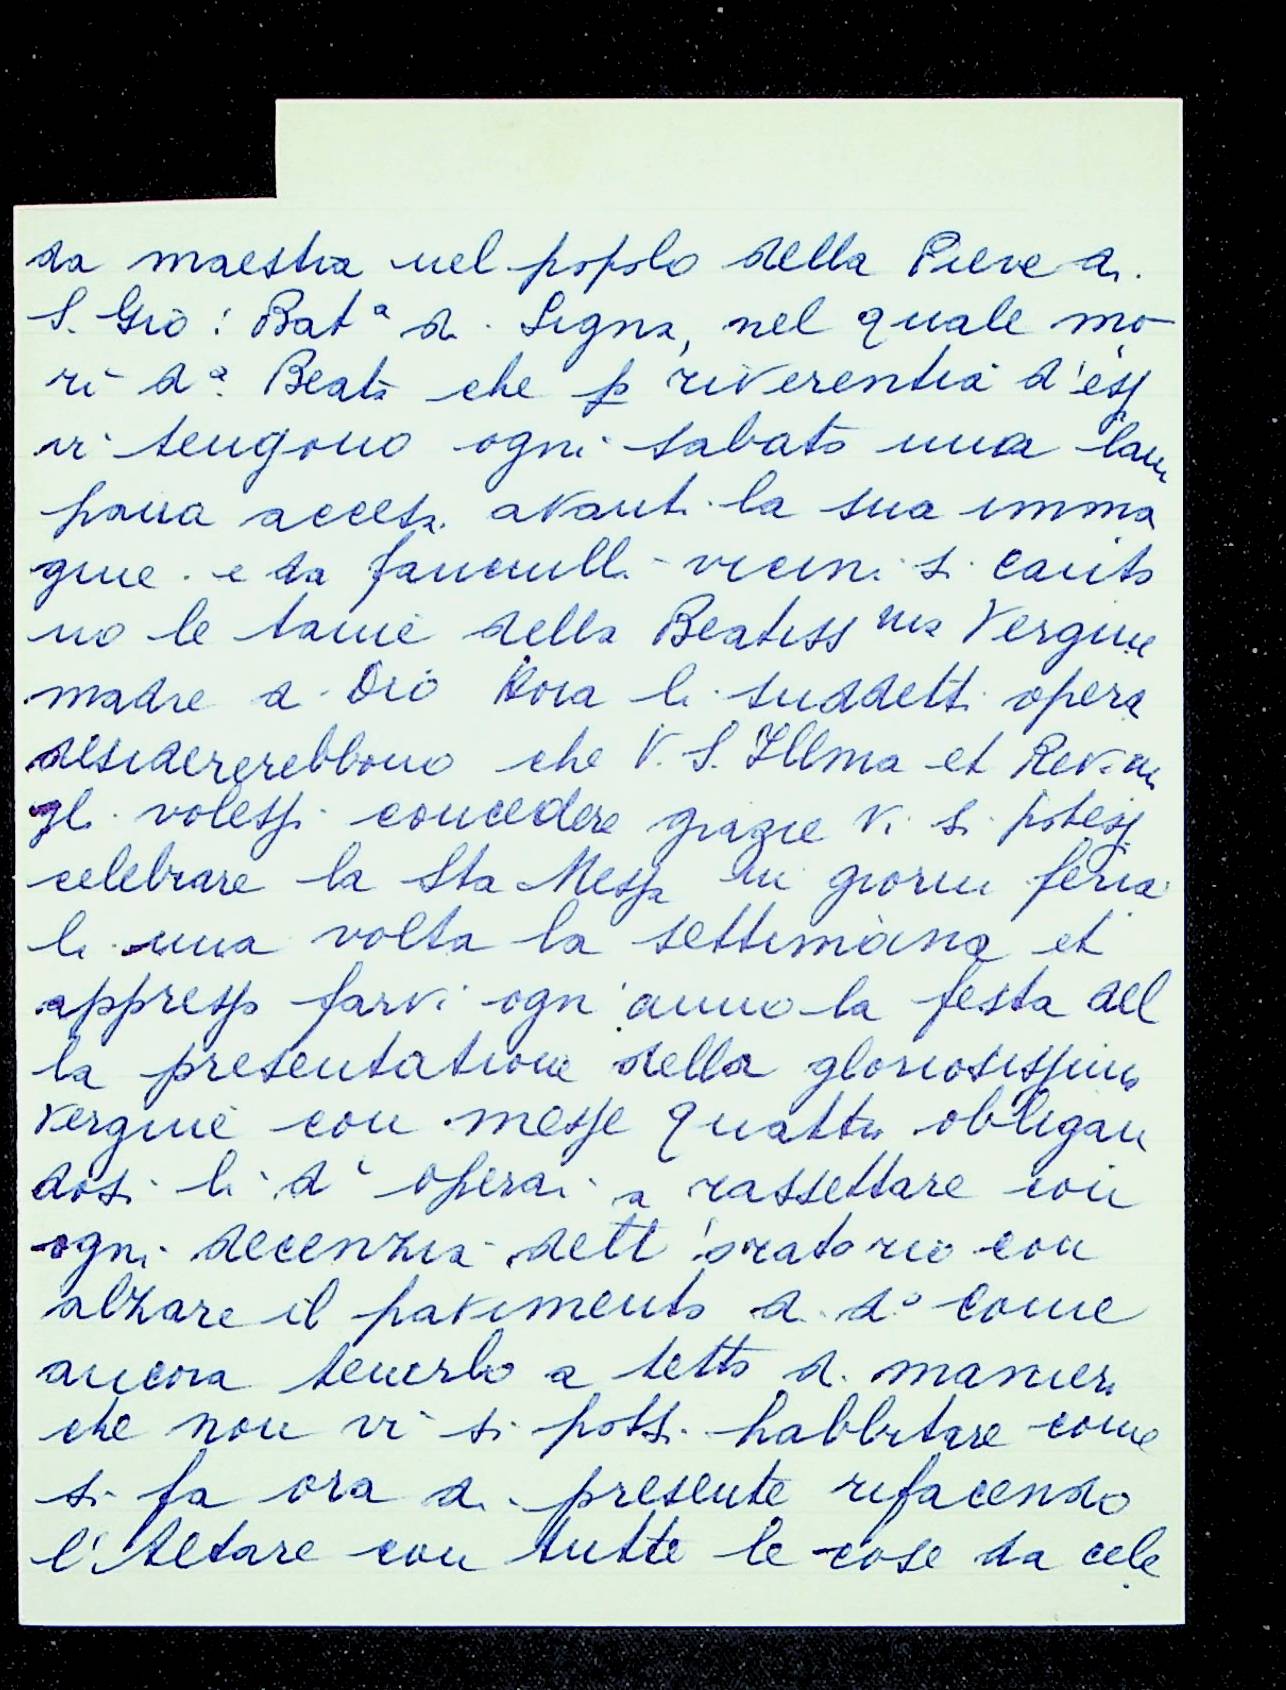 da maestra nel popolo della Pieve di
S. Gio: Batª di Signa, nel quale mo-
rì dª. Beata che p riverentia d'essa
vi tengono ogni sabato una lam
pana accesa avanti la sua imma
gine e da fanciulli vicini si canta
no le tanie della Beatissma Vergine
madre di Dio Hora li suddetti opera
desidererebbono che V. S. Illma et Rev.ma
gli volessi concedere grazie vi si potessi
celebrare la Sta Messa in giorni feria
li una volta la settimana et
appresso farvi ogn'anno la festa del
la presentatione della gloriosissima
Vergine con messe quattro obligan
dosi li di operai a rassettare con
ogni decenzia dett'oratorio con
alzare il pavimento di dº come
ancora tenerlo a tetto di maniera
che non vi si possi habbitare come
si fa ora di presente rifacendo
l'Altare con tutte le cose da cele